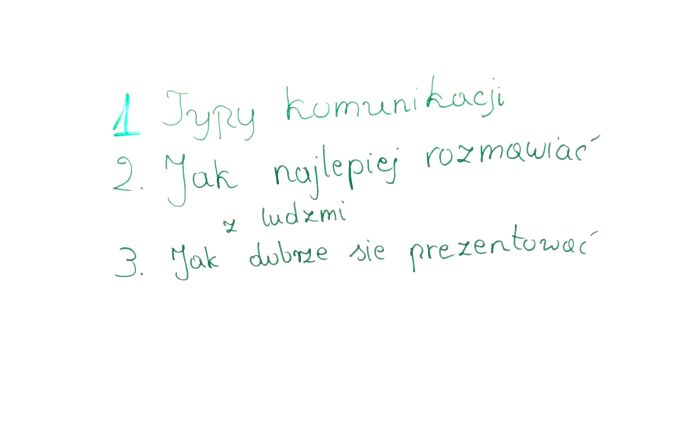 1 Typy komunikacji
2. Jak najlepiej rozmawiać
z ludzmi
3. Jak dobrze sie prezentować